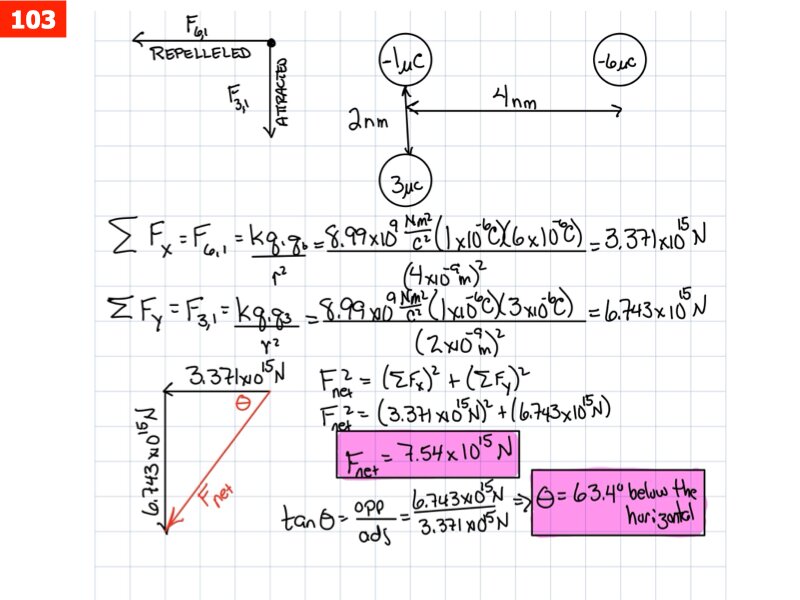 103
F6,1
REPELLELED
F3,1
ATTRACTED
-1μC
-6μC
4nm
2nm
3μC
ΣFx = F6,1 = kq1q6/r² = 8.99x10⁹ Nm²/C² (1x10⁻⁶C)(6x10⁻⁶C)/(4x10⁻⁹m)² = 3.371x10¹⁵N
ΣFy = F3,1 = kq1q3/r² = 8.99x10⁹ Nm²/C² (1x10⁻⁶C)(3x10⁻⁶C)/(2x10⁻⁹m)² = 6.743x10¹⁵N
3.371x10¹⁵N
θ
6.743x10¹⁵N
Fnet
Fnet² = (ΣFx)² + (ΣFy)²
Fnet² = (3.371x10¹⁵N)² + (6.743x10¹⁵N)
Fnet = 7.54x10¹⁵ N
tanθ = opp/adj = 6.743x10¹⁵N/3.371x10¹⁵N ⇒ θ = 63.4° below the
horizontal